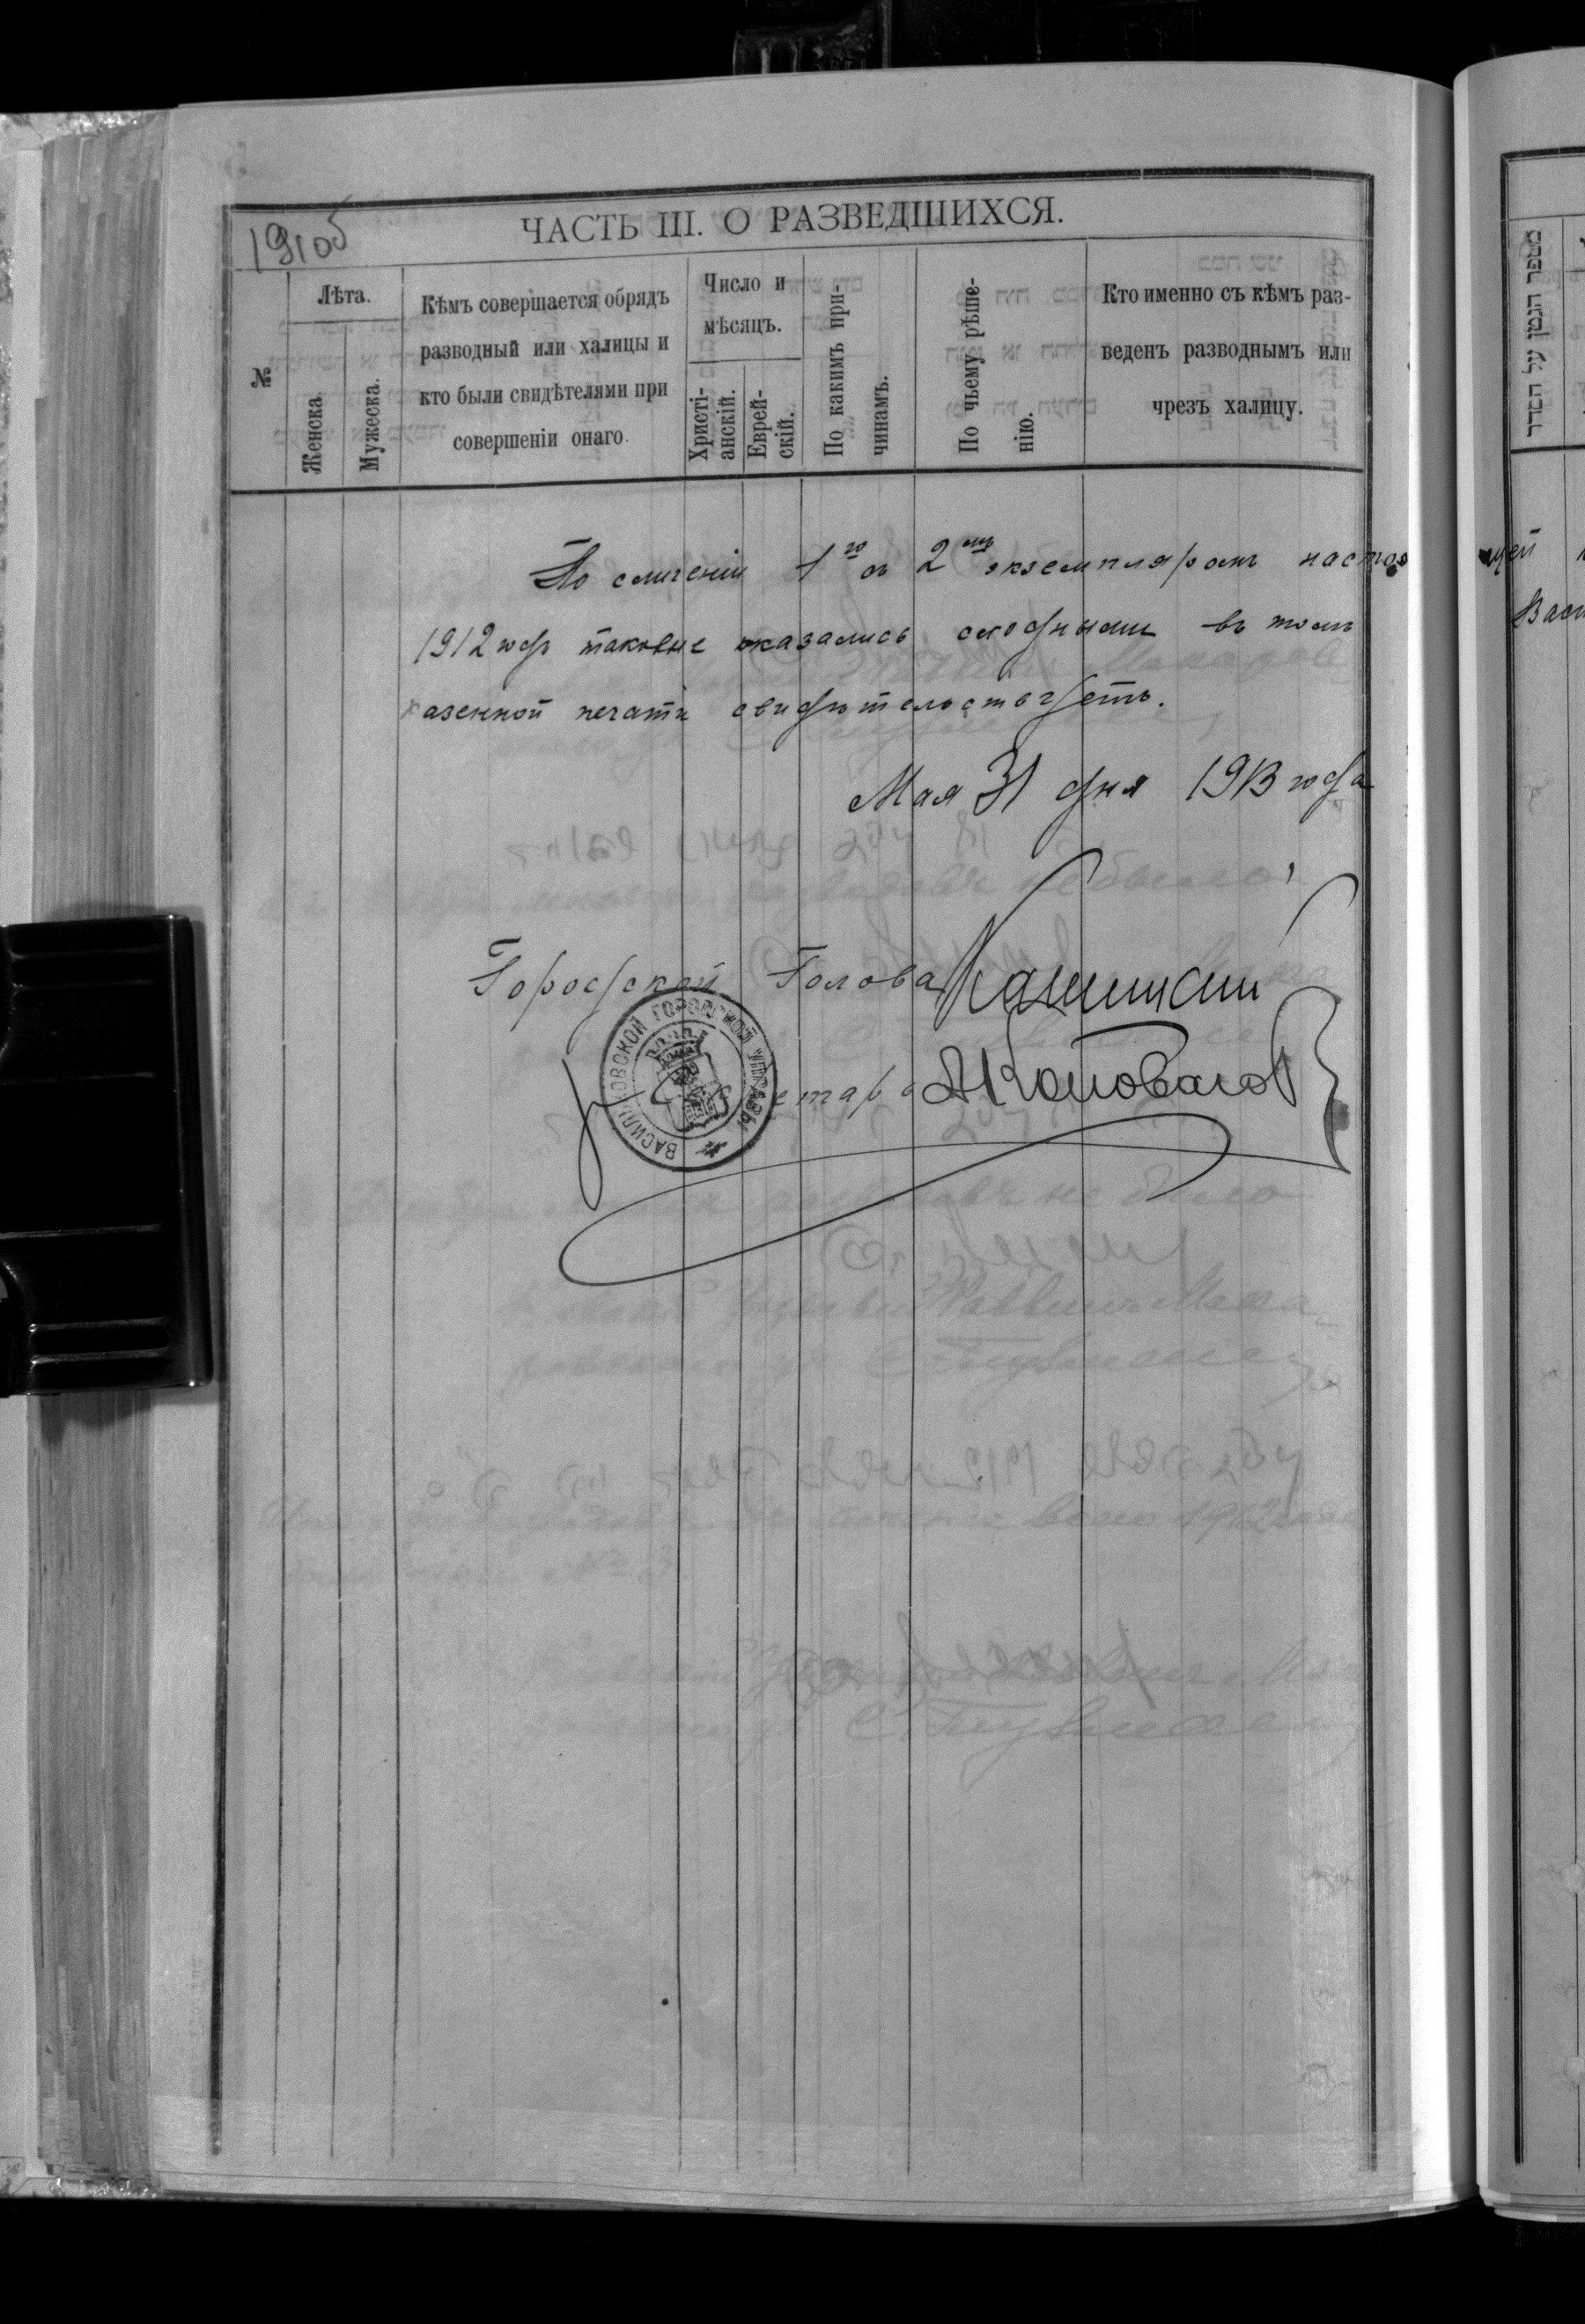 191об
ЧАСТЬ III. О РАЗВЕДШИХСЯ.
№
Лѣта.
Женска
Мужеска.
Кѣмъ совершается обрядъ
разводный или халицы и
кто были свидѣтелями при
совершеніи онаго.
Число и
мѣсяцъ.
Христі-
анскій.
Еврей-
скій.
По какимъ при-
чинамъ.
По чьему рѣше-
нію.
Кто именно съ кѣмъ раз-
веденъ разводнымъ или
чрезъ халицу.
מספר הגטין על הסדר
По сличеніи 1го съ 2мъ экземпляромъ настоя
щей
1912 годъ таковые оказались сходными въ томъ
Васи
казенной печати свидѣтельствуетъ.
Мая 31 дня 1913 года
Городской Голова
Секретарь АКоновалов
ВАСИЛЬКОВСКОЙ ГОРОДСКОЙ УПРАВЫ